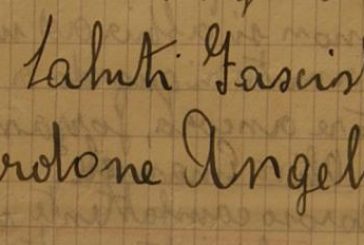 Saluti Fascis
rdone Angel